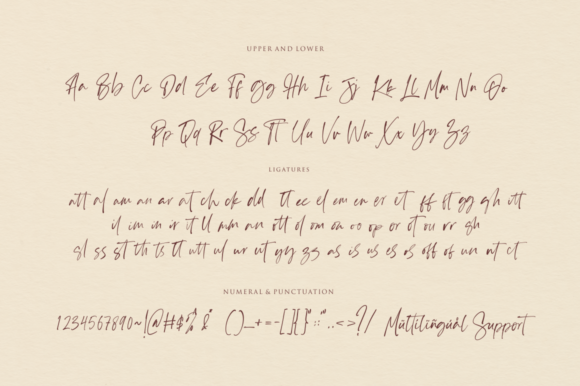 UPPER AND LOWER
Aa Bb Cc Dd Ee Ff Gg Hh Ii Jj Kk Ll Mm Nn Oo
Pp Qq Rr Ss Tt Uu Vv Ww Xx Yy Zz
LIGATURES
att al am an ar at ch ck dd tt ec el em en er et ff ft gg gh itt
il im in ir it ll mm an ott ol om on oo op or ot ou rr sh
sl ss st th ts tt utt ul ur ut yy zz as is us es os off of un nt ct
NUMERAL & PUNCTUATION
1234567890~!@#$%^& ()_+=-[]{}"::'"..<>?/ Múltilingúál Support